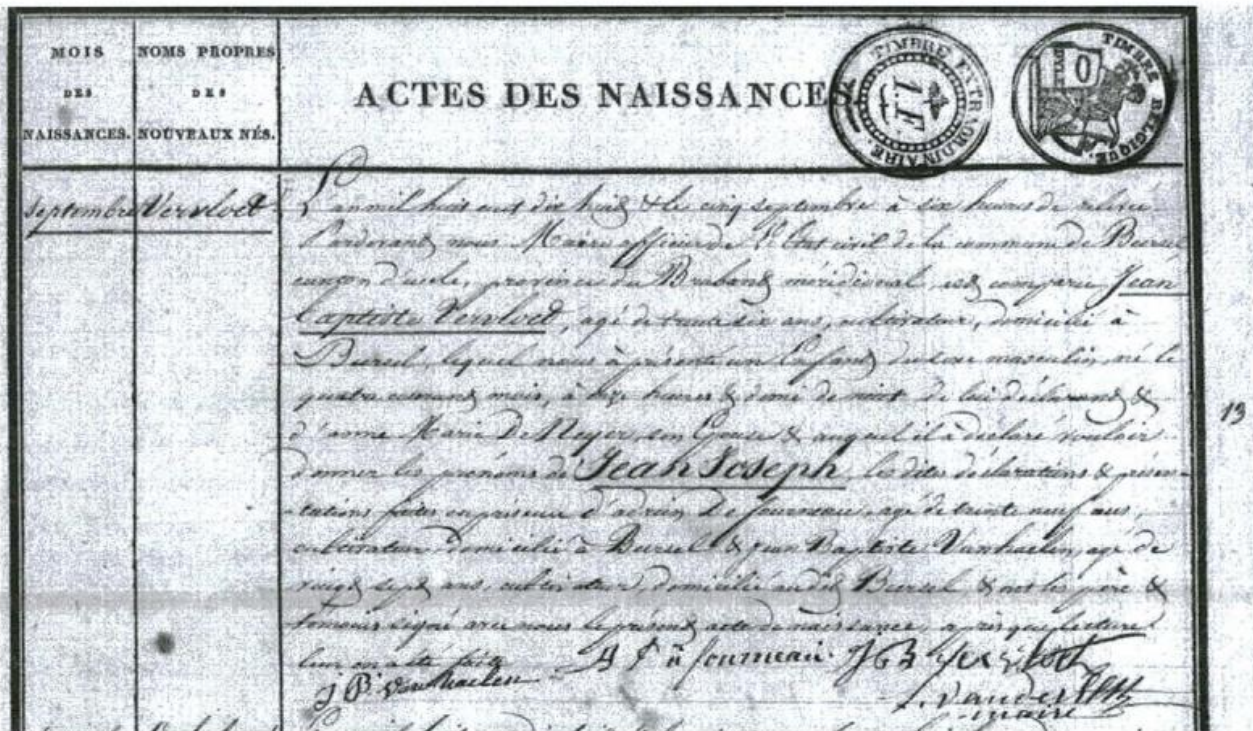 MOIS
DES
NAISSANCES.
NOMS PROPRES
DES
NOUVEAUX NÉS.
ACTES DES NAISSANCES
TIMBRE EXTRAORDINAIRE.
I.F.
TIMBRE BELGIQUE.
DYLE
0
Septembre Vervloet
L'an mil huit cent dix huit & le cinq septembre à six heures de relevée
Pardevant nous Maire officier de l'Etat civil de la commune de Beersel
canton d'uccle, province du Brabant méridional, est comparu Jean
Baptiste Vervloet, agé de six ans, cultivateur, domicilié à
Beersel, lequel nous à présenté un Enfant du sexe masculin, né le
quatre courant mois, à heures & demi de de lui déclarant &
d'anne Marie De Neyer, son Epouse & auquel il à déclaré vouloir
donner les prénoms de Jean Joseph les dites déclarations & présen-
-tations faites en présence d'adrien De fourneau, agé de trente neuf ans,
cultivateur domicilié à Beersel & jean Baptiste Vanhaelen, agé de
vingt sept ans, cultivateur, domicilié audit Beersel & ont les père &
temoins signé avec nous le présent acte de naissance, après que lecture
leur en a été faite
fourneau. J B Vervloet
J P vanhaelen
maire
13